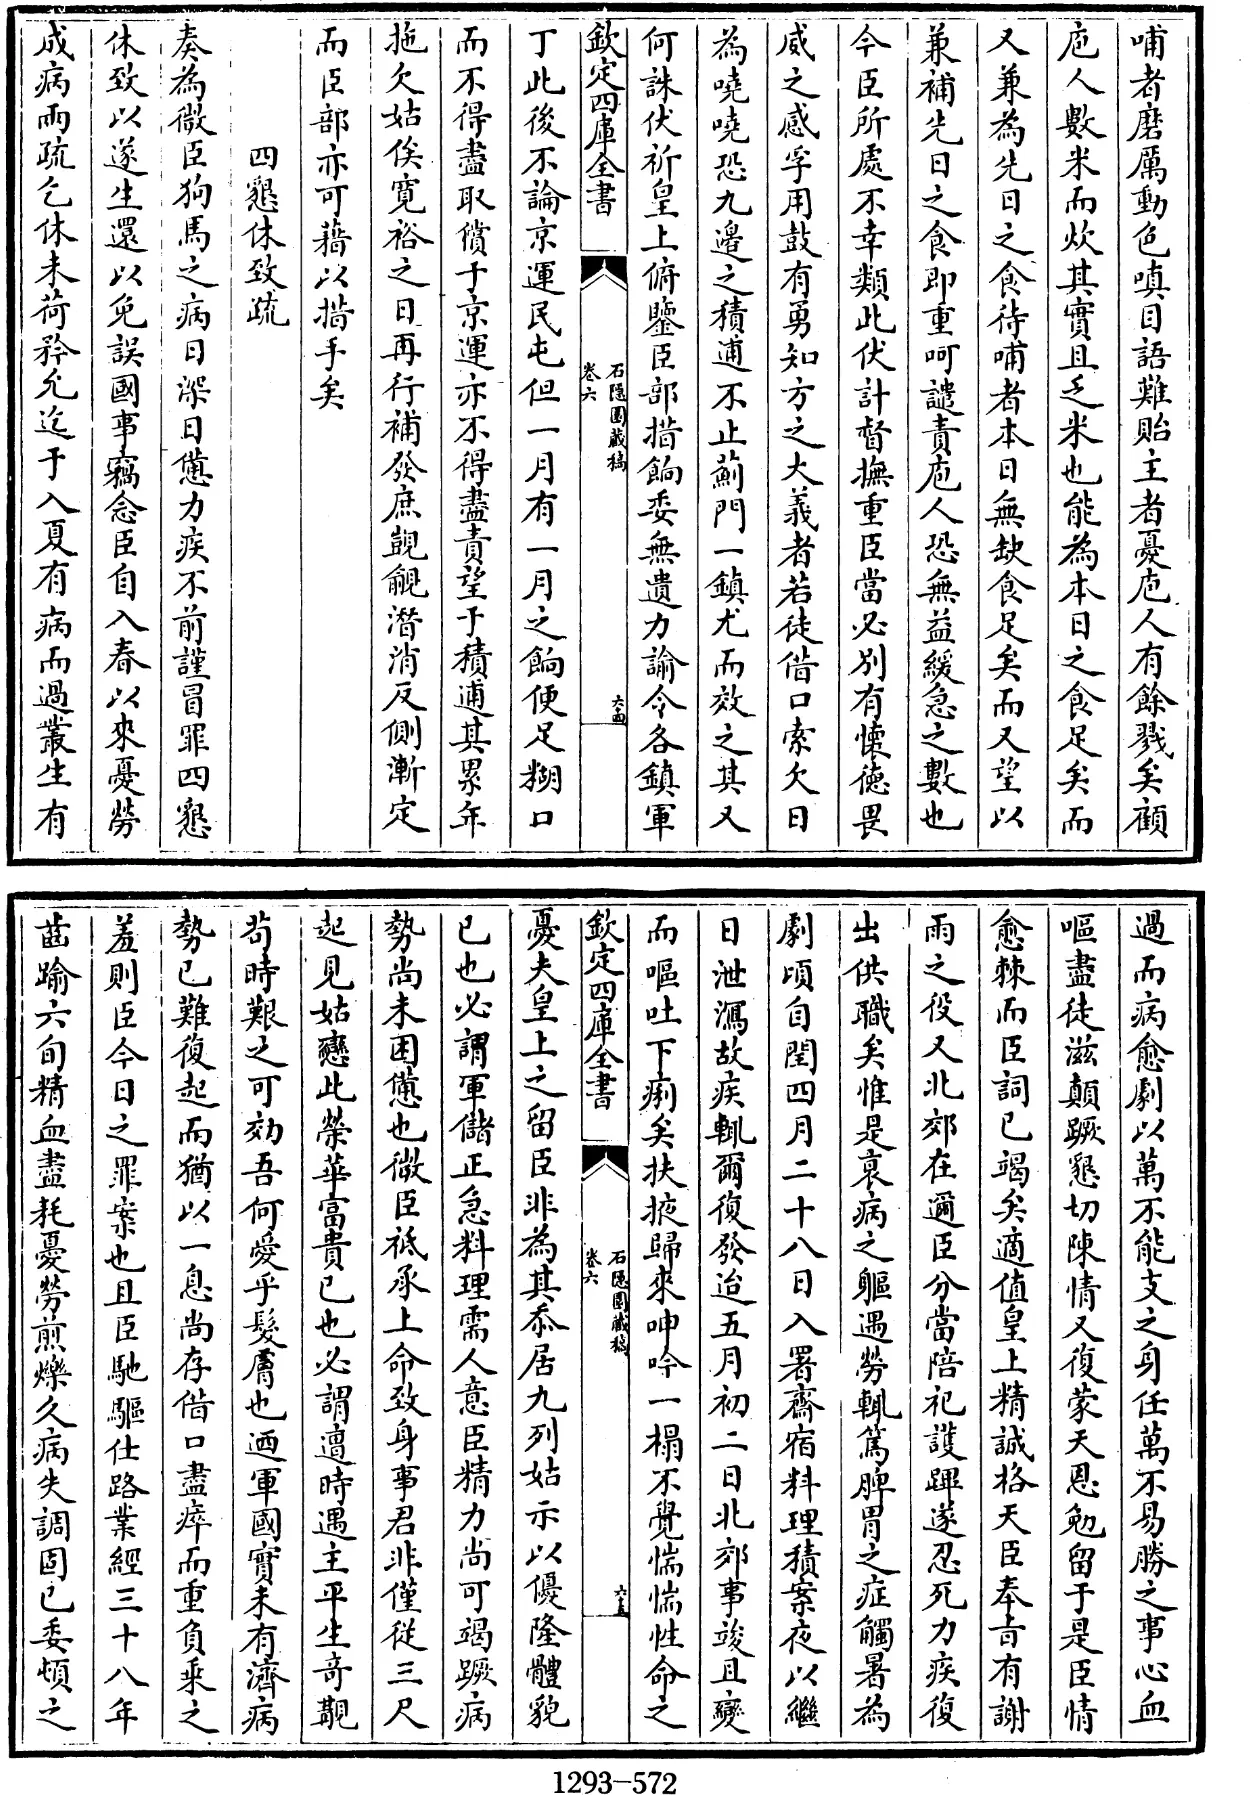 哺者磨厲動色嗔目語難貽主者憂庖人有餘戮矣顧
庖人數米而炊其實且乏米也能為本日之食足矣而
又兼為先日之食待哺者本日無缺食足矣而又望以
兼補先日之食即重呵譴責庖人恐無益緩急之數也
今臣所處不幸類此伏計督撫重臣當必別有懷德畏
威之感孚用鼓有勇知方之大義者若徒借口索欠日
為嘵嘵恐九邊之積逋不止薊門一鎮尤而效之其又
何誅伏祈皇上俯鑒臣部措餉委無遺力諭令各鎮軍
欽定四庫全書
石隱園藏稿
卷六
六四
丁此後不論京運民屯但一月有一月之餉便足糊口
而不得盡取償于京運亦不得盡責望于積逋其累年
拖欠姑俟寬裕之日再行補發庶覬覦潛消反側漸定
而臣部亦可藉以措手矣
四懇休致疏
奏為微臣狗馬之病日深日憊力疾不前謹冒罪四懇
休致以遂生還以免誤國事竊念臣自入春以來憂勞
成病兩疏乞休未荷矜允迄于入夏有病而過叢生有
過而病愈劇以萬不能支之身任萬不易勝之事心血
嘔盡徒滋顛蹶懇切陳情又復蒙天恩勉留于是臣情
愈棘而臣詞已竭矣適值皇上精誠格天臣奉旨有謝
雨之役又北郊在邇臣分當陪祀護蹕遂忍死力疾復
出供職矣惟是哀病之軀遇勞輒篤脾胃之症觸暑為
劇頃自閏四月二十八日入署齋宿料理積案夜以繼
日泄瀉故疾輒爾復發迨五月初二日北郊事竣且變
而嘔吐下痢矣扶掖歸來呻吟一榻不覺惴惴性命之
欽定四庫全書
石隱園藏稿
卷六
六五
憂夫皇上之留臣非為其忝居九列姑示以優隆體貌
已也必謂軍儲正急料理需人意臣精力尚可竭蹶病
勢尚未困憊也微臣祗承上命致身事君非僅從三尺
起見姑戀此榮華富貴已也必謂遭時遇主平生奇覯
苟時艱之可効吾何愛乎髮膚也迺軍國實未有濟病
勢已難復起而猶以一息尚存借口盡瘁而重負乘之
羞則臣今日之罪案也且臣馳驅仕路業經三十八年
齒踰六旬精血盡耗憂勞煎爍久病失調固已委頓之
1293-572